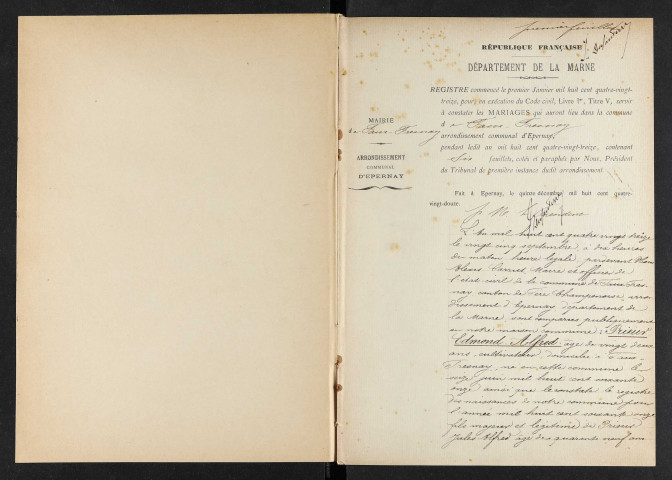 premier feuillet
RÉPUBLIQUE FRANÇAISE
DÉPARTEMENT DE LA MARNE
REGISTRE commencé le premier Janvier mil huit cent quatre-vingt-
treize, pour, en exécution du Code civil, Livre Ier, Titre V, servir
à constater les MARIAGES qui auront lieu dans la commune
d e Faux-Fresnay
arrondissement communal d'Epernay,
pendant ledit an mil huit cent quatre-vingt-treize, contenant
six feuillets, cotés et paraphés par Nous, Président
du Tribunal de première instance dudit arrondissement
MAIRIE
de Faux-Fresnay
ARRONDISSEMENT
COMMUNAL
D'ÉPERNAY
Fait à Epernay, le quinze décembre mil huit cent quatre-
vingt-douze.
L'an mil huit cent quatre vingt treize
le vingt cinq septembre à dix heures
du matin heure légale, pardevant
Maire et officier de
l'état civil de la commune de Faux-Fres-
nay canton de Fère Champenoise, arron-
dissement d'Epernay département de
la Marne, sont comparus publiquement
en notre maison commune : Prieur
Edmond Alfred, âgé de vingt deux
ans, cultivateur domicilié à Faux-
Fresnay, né en cette commune le
onze juin mil huit cent soixante
onze ainsi que le constate le registre
des naissances de notre commune pour
l'année mil huit cent soixante onze
fils majeur et légitime de Prieur
Jules Alfred âgé de quarante neuf ans